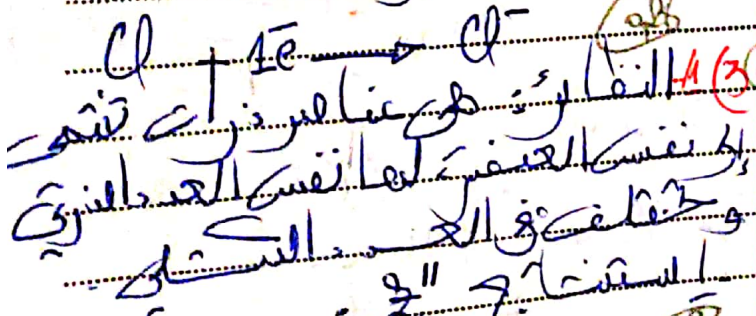 Cl + 1e⁻ → Cl⁻
3) النظائر: هي عناصر ذرات تنتمي
إلى نفس العنصر لها نفس العدد الذري
وتختلف في العدد الكتلي.
استنتاج "Z